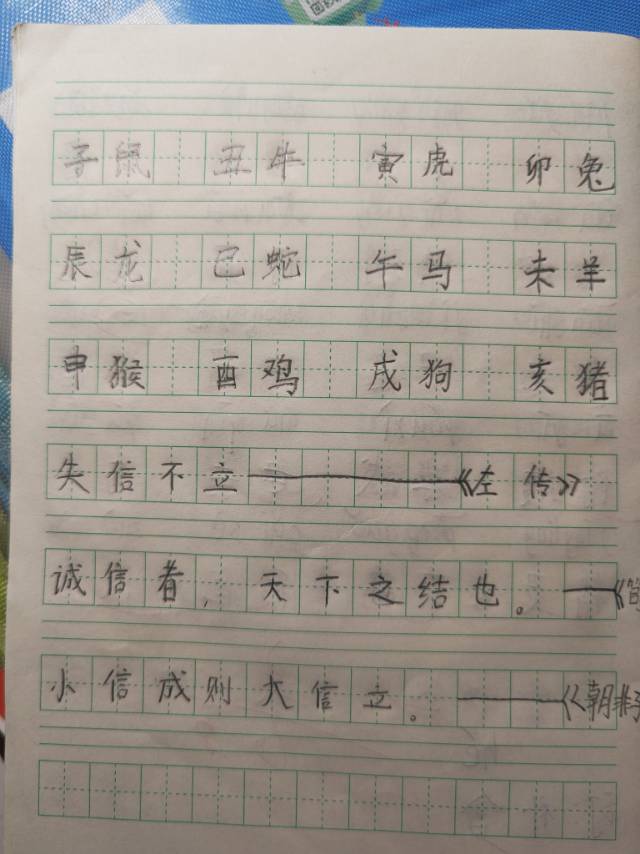 子鼠 丑牛 寅虎 卯兔
辰龙 巳蛇 午马 未羊
申猴 酉鸡 戌狗 亥猪
失信不立——《左传》
诚信者，天下之结也。——《
小信成则大信立。——《朝非子